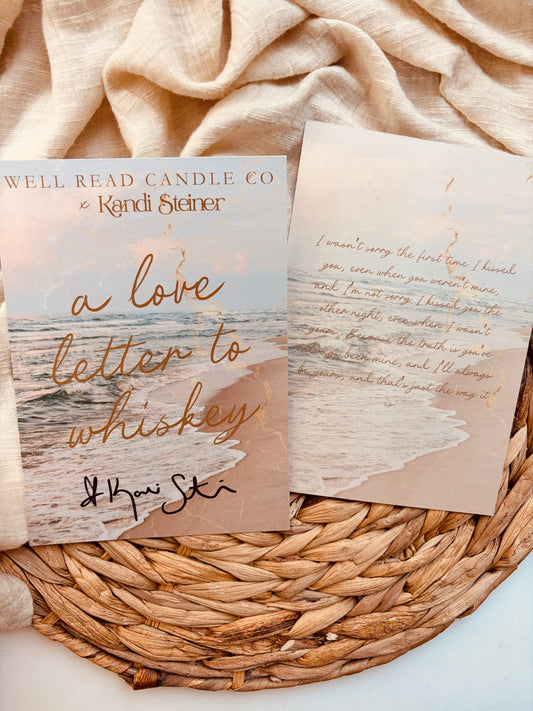 WELL READ CANDLE CO
x Kandi Steiner
a love
letter to
whiskey
Kandi Steiner
I wasn't sorry the first time I kissed
you, even when you weren't mine,
and I'm not sorry I kissed you the
other night, even when I wasn't
yours. Because the truth is you've
always been mine, and I'll always
be yours, and that's just the way it
is.